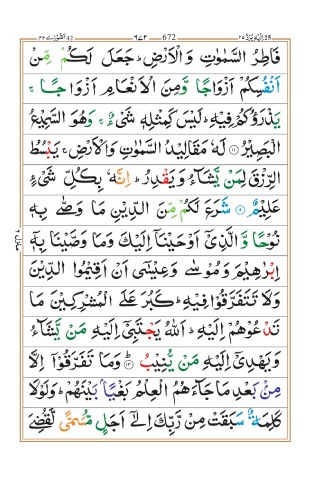 42 الشورى ٦٧٢ 672 اليه يرد 25
فَاطِرُ السَّمٰوٰتِ وَالْاَرْضِ ؕ جَعَلَ لَكُمْ مِّنْ
اَنْفُسِكُمْ اَزْوَاجًا وَّمِنَ الْاَنْعَامِ اَزْوَاجًا ۚ
يَذْرَؤُكُمْ فِيْهِ ؕ لَيْسَ كَمِثْلِهٖ شَىْءٌ ۚ وَهُوَ السَّمِيْعُ
الْبَصِيْرُ ﴿۱۱﴾ لَهٗ مَقَالِيْدُ السَّمٰوٰتِ وَالْاَرْضِ ۚ يَبْسُطُ
الرِّزْقَ لِمَنْ يَّشَآءُ وَيَقْدِرُ ؕ اِنَّهٗ بِكُلِّ شَىْءٍ
عَلِيْمٌ ﴿۱۲﴾ شَرَعَ لَكُمْ مِّنَ الدِّيْنِ مَا وَصّٰى بِهٖ
نُوْحًا وَّالَّذِىْۤ اَوْحَيْنَاۤ اِلَيْكَ وَمَا وَصَّيْنَا بِهٖۤ
اِبْرٰهِيْمَ وَمُوْسٰى وَعِيْسٰٓى اَنْ اَقِيْمُوا الدِّيْنَ
وَلَا تَتَفَرَّقُوْا فِيْهِ ؕ كَبُرَ عَلَى الْمُشْرِكِيْنَ مَا
تَدْعُوْهُمْ اِلَيْهِ ؕ اَللّٰهُ يَجْتَبِىْۤ اِلَيْهِ مَنْ يَّشَآءُ
وَيَهْدِىْۤ اِلَيْهِ مَنْ يُّنِيْبُ ؕ ﴿۱۳﴾ وَمَا تَفَرَّقُوْۤا اِلَّا
مِنْۢ بَعْدِ مَا جَآءَهُمُ الْعِلْمُ بَغْيًاۢ بَيْنَهُمْ ؕ وَلَوْلَا
كَلِمَةٌ سَبَقَتْ مِنْ رَّبِّكَ اِلٰٓى اَجَلٍ مُّسَمًّى لَّقُضِىَ